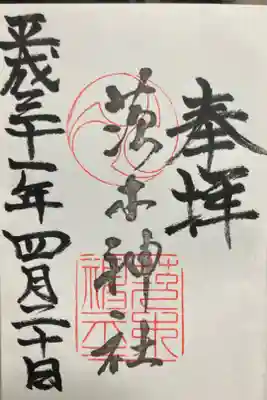 奉拝
茨木神社
平成三十一年四月二十日